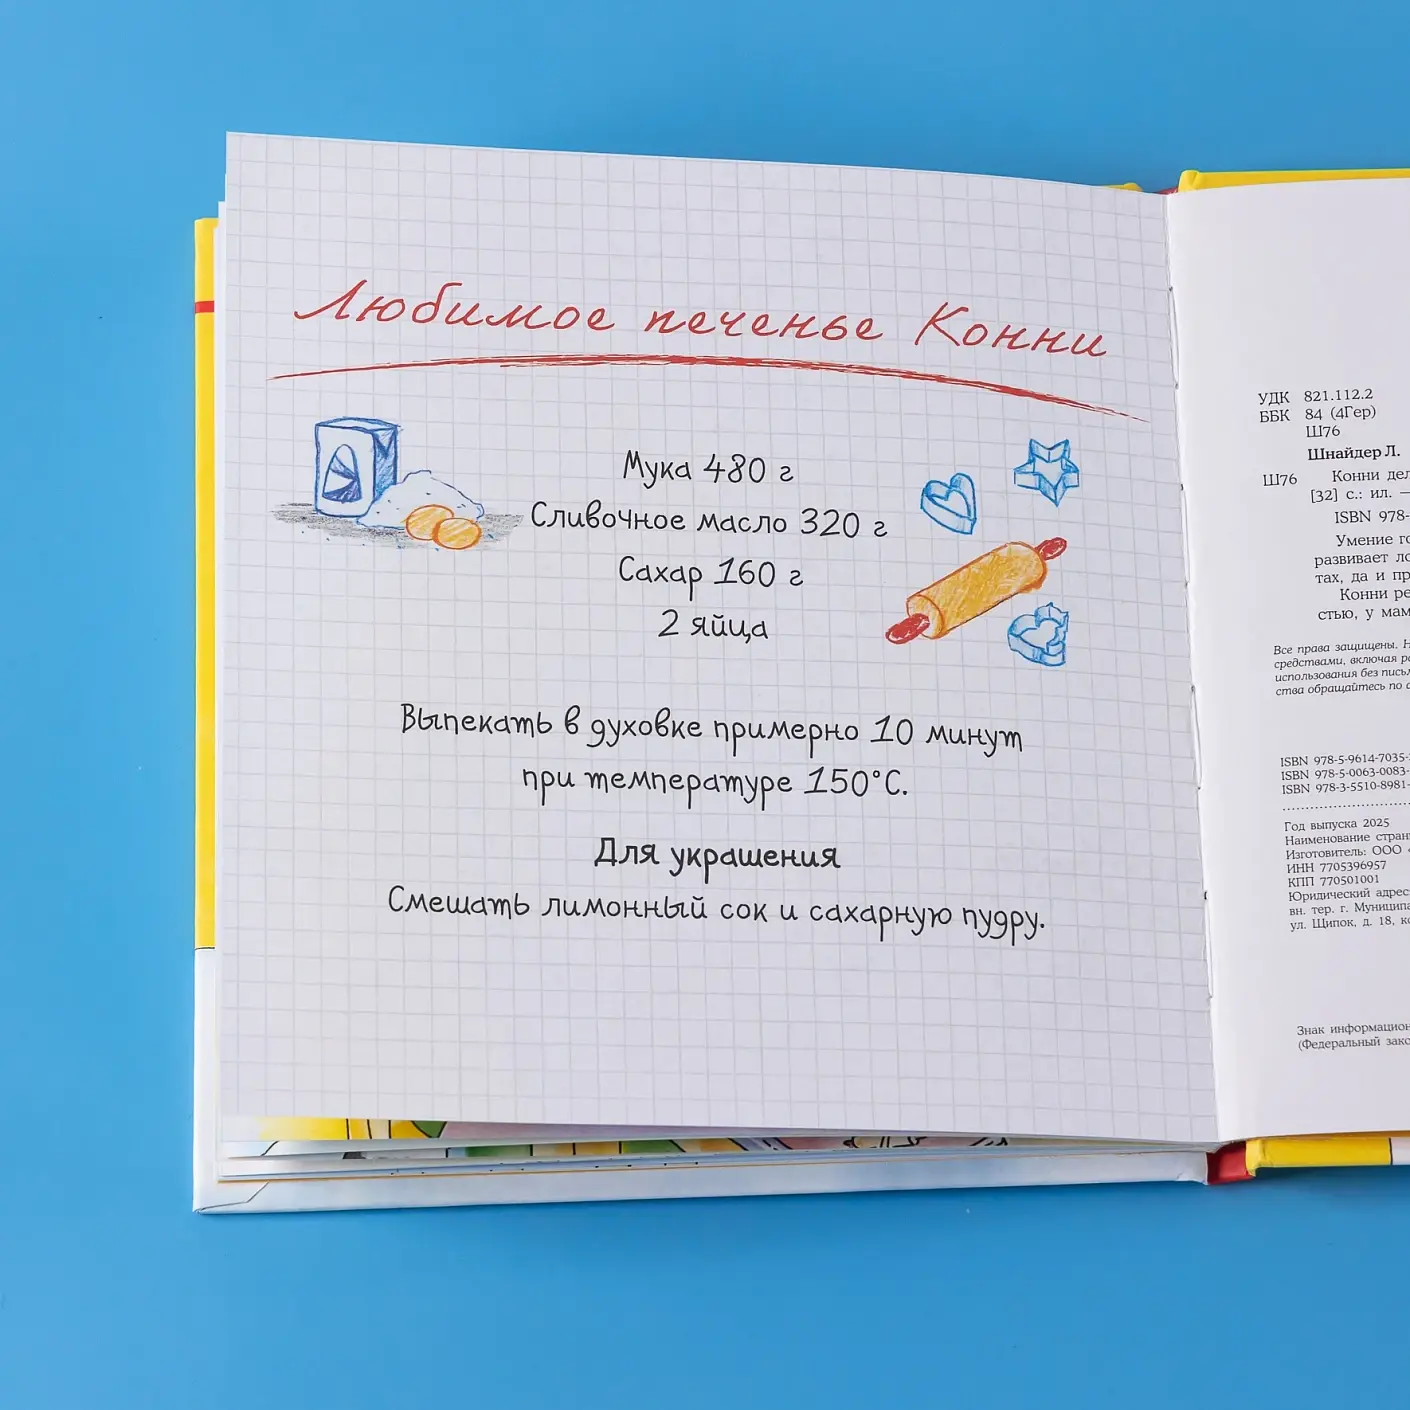 Любимое печенье Конни
Мука 480 г
Сливочное масло 320 г
Сахар 160 г
2 яйца
Выпекать в духовке примерно 10 минут
при температуре 150°С.
Для украшения
Смешать лимонный сок и сахарную пудру.
УДК 821.112.2
ББК 84 (4Гер)
Ш76
Шнайдер Л.
Ш76 Конни дел
[32] с.: ил. —
ISBN 978-
Умение го
развивает ло
тах, да и пр
Конни ре
стью, у мам
Все права защищены. Н
средствами, включая ра
использования без письм
ства обращайтесь по а
ISBN 978-5-9614-7035-
ISBN 978-5-0063-0083-
ISBN 978-3-5510-8981-
Год выпуска 2025
Наименование стран
Изготовитель: ООО
ИНН 7705396957
КПП 770501001
Юридический адрес
вн. тер. г. Муниципа
ул. Щипок, д. 18, к
Знак информацион
(Федеральный зако